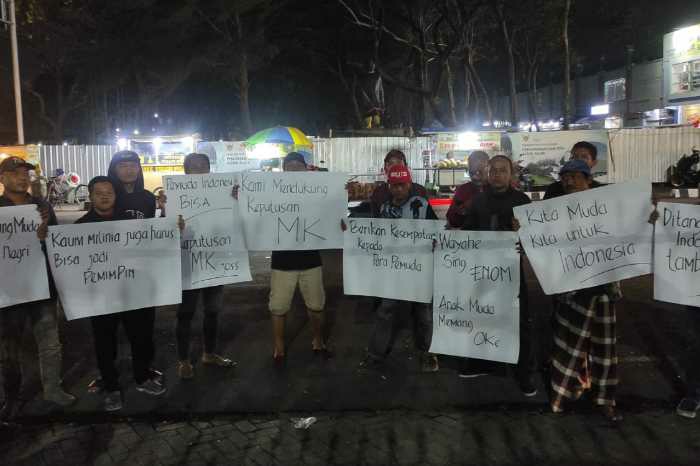 ng Muda
Nagri
Kaum Milinia juga harus
Bisa jadi
PEMIMPIN
Pemuda Indonesia
BISA
Keputusan
MK Joss
Kami Mendukung
Keputusan
MK
Berikan Kesempatan
Kepada
Para Pemuda
Wayahe
Sing
ENOM
Anak Muda
Memang
OKe
Kita Muda
Kita untuk
Indonesia
Ditan
Ind
tamb